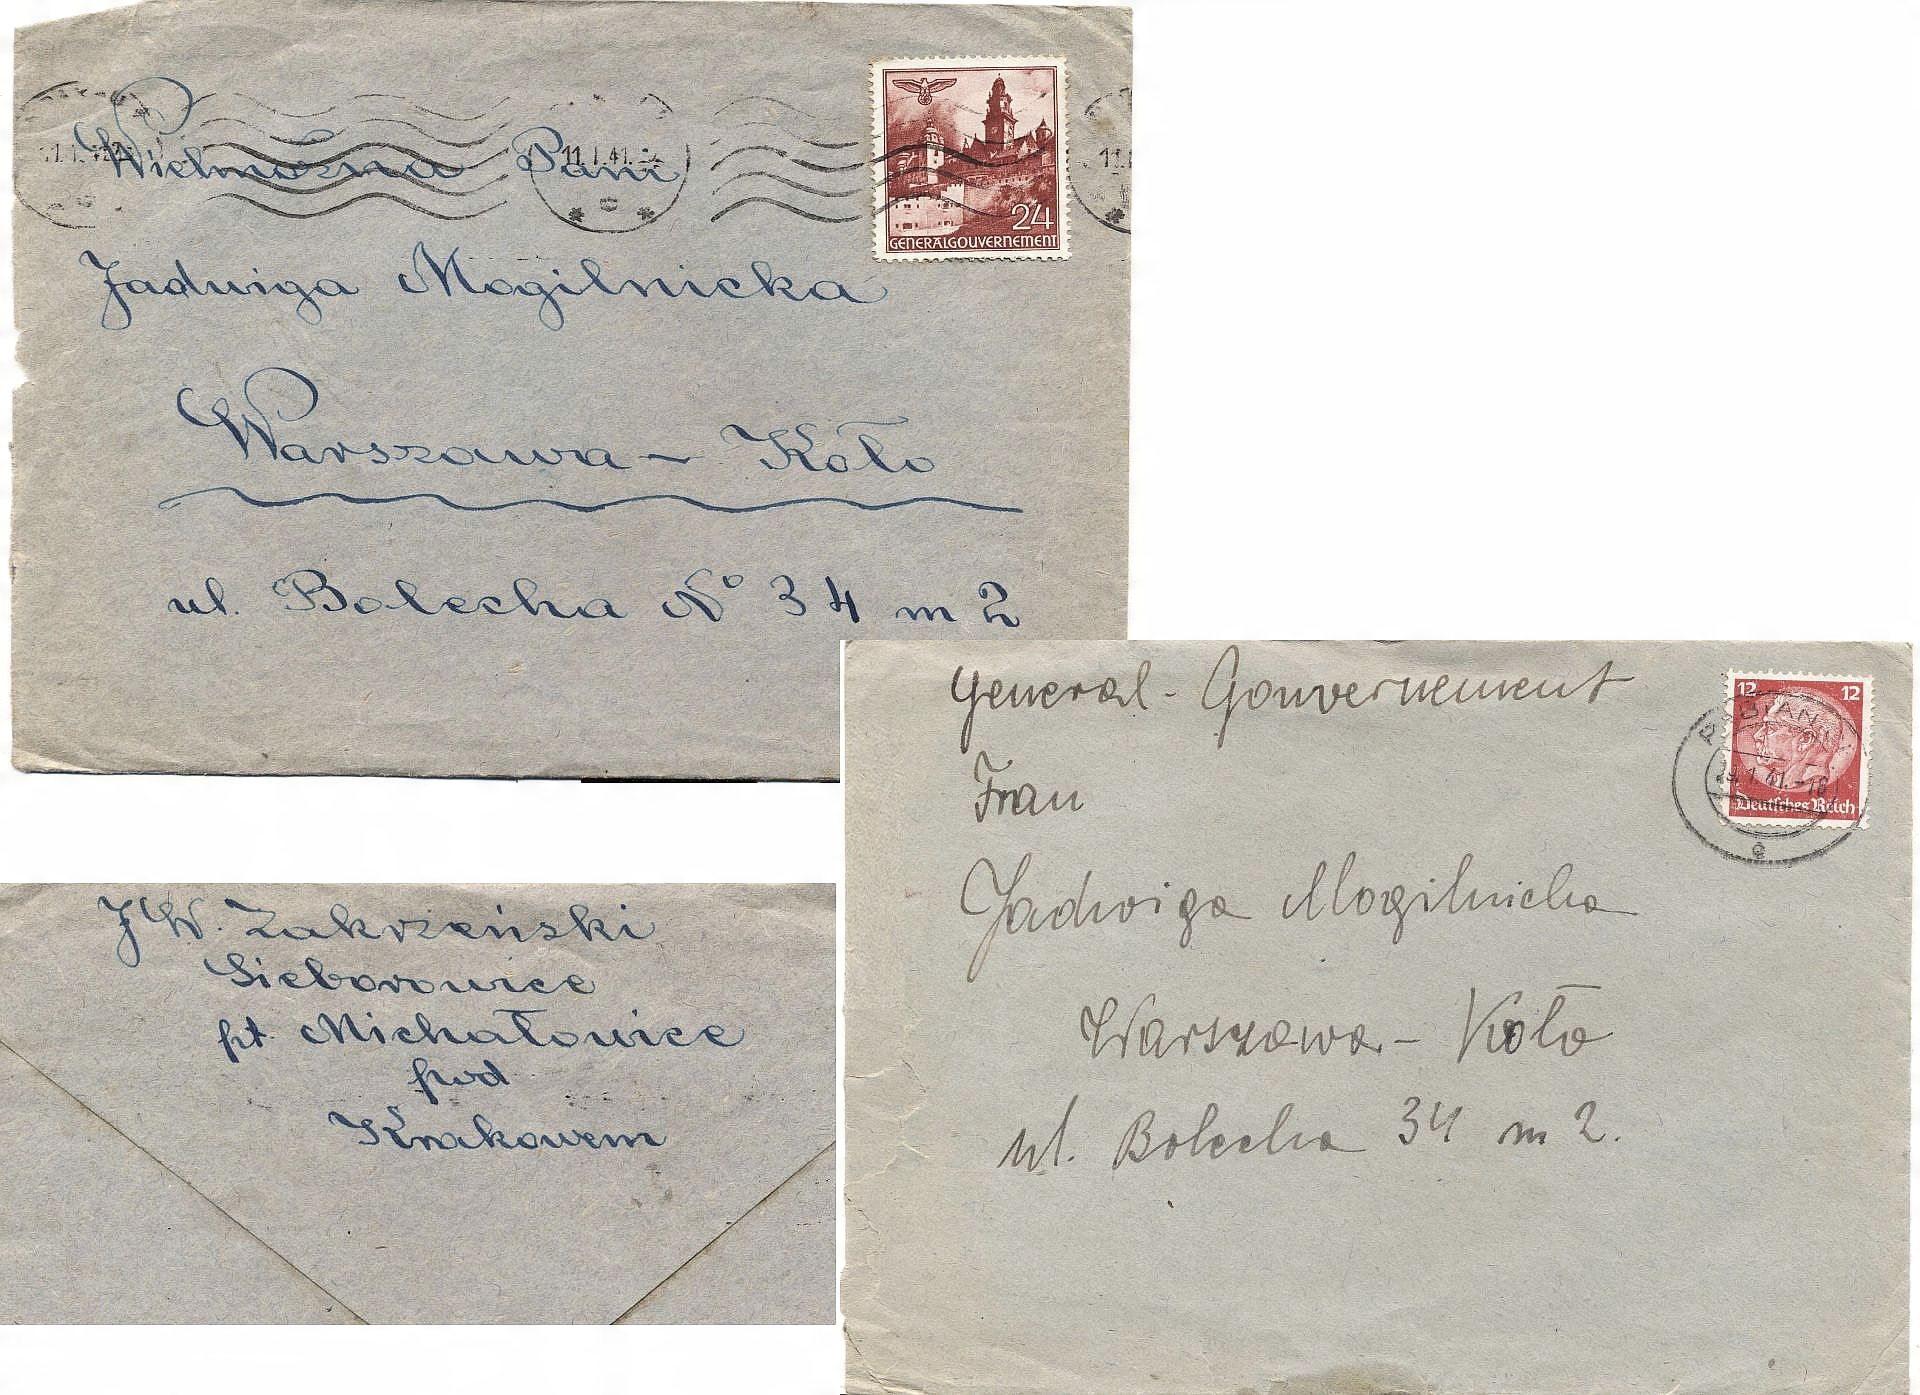 Wielmożna Pani
11.1.41
24
GENERALGOUVERNEMENT
Jadwiga Mogilnicka
Warszawa - Koło
ul. Bolecha Nº 34 m 2
J W. Zakrzeński
Sieborowice
pt. Michałowice
pod
Krakowem
General-Gouvernement
12 12
PABIANICE
1 41.-18
Deutsches Reich
e
Frau
Jadwiga Mogilnicka
Warszawa - Koło
ul. Bolecha 34 m 2.